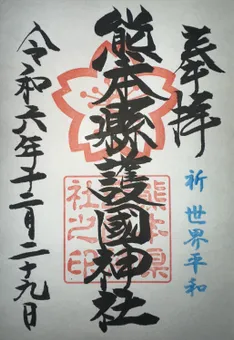 奉拝
祈 世界平和
熊本縣護國神社
熊本県
護国神
社之印
令和六年十二月二十九日